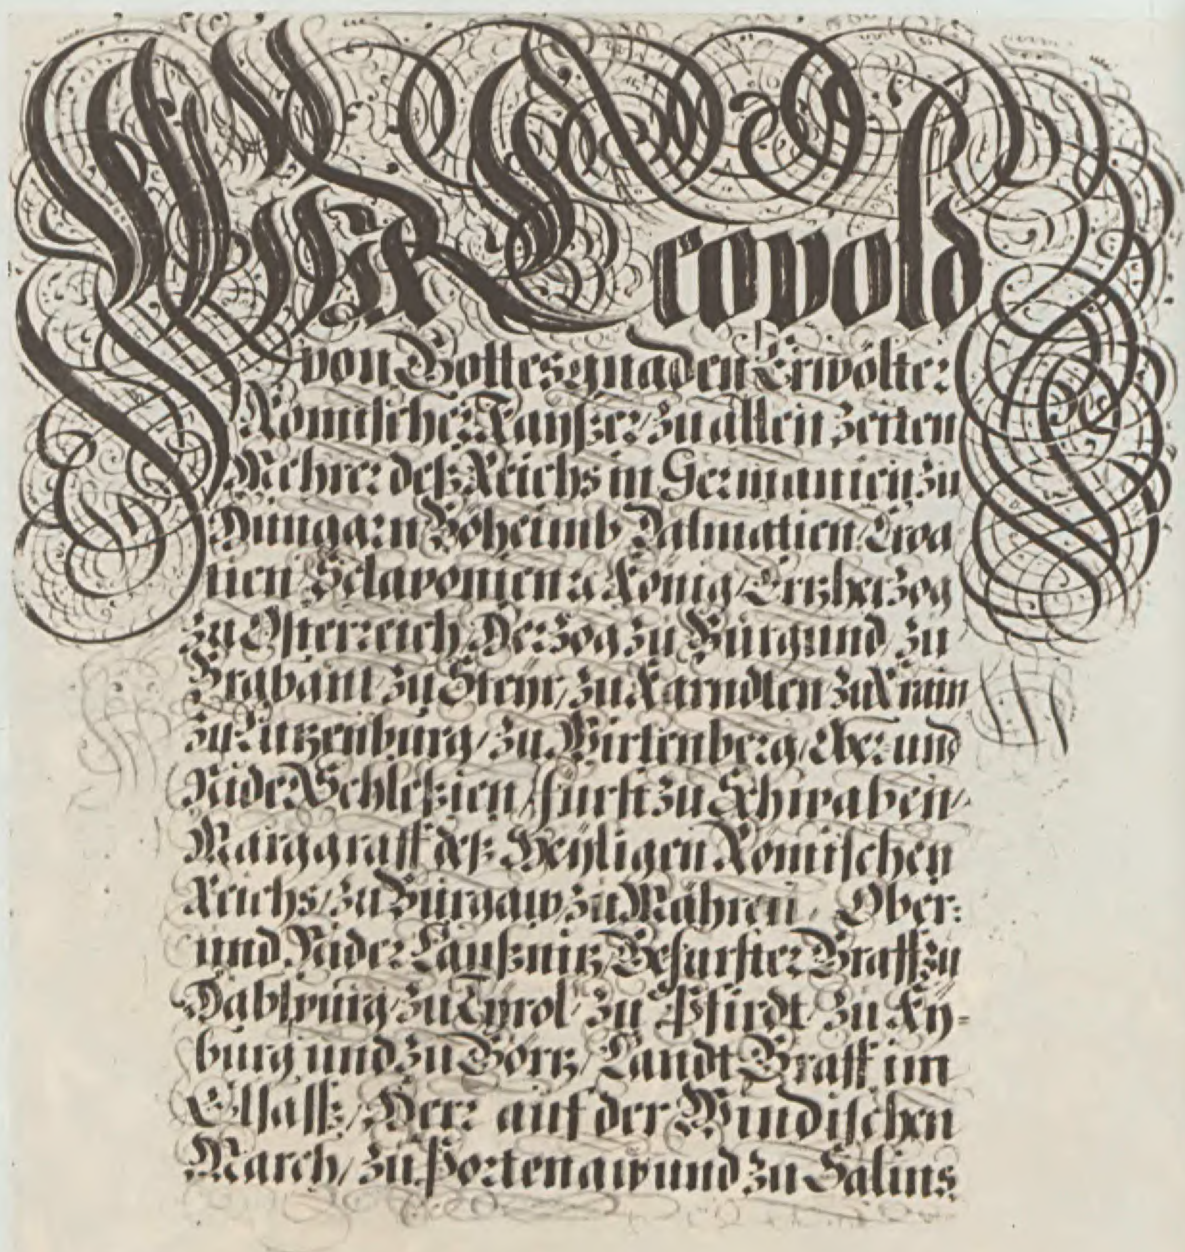 WIR Leopold
von Gottes gnaden Erwölter
Römischer Kaÿßer / zu allen Zeiten
Mehrer deß Reichs in Germanien zu
Hungarn Böheimb Dalmatien Croa
tien Sclavonien ꝛc König / Ertzherzog
zu Österreich / Herzog zu Burgund / zu
Brabant / zu Steÿr / zu Kärndten zu Krain
zu Lützenburg / zu Wirtenberg / Ober und
Nider Schleßien / fürst zu Schwaben /
Marggraff deß Heyligen Römischen
Reichs / zu Burgaw / zu Mähren / Ober:
und Nider Laußnitz / Gefürster Graff zu
Habspurg / zu Tÿrol / zu Pfirdt / zu Kÿ=
burg und zu Görtz / Landt Graff im
Elsaß / Herr auf der Windischen
March / zu Portenaw und zu Salins